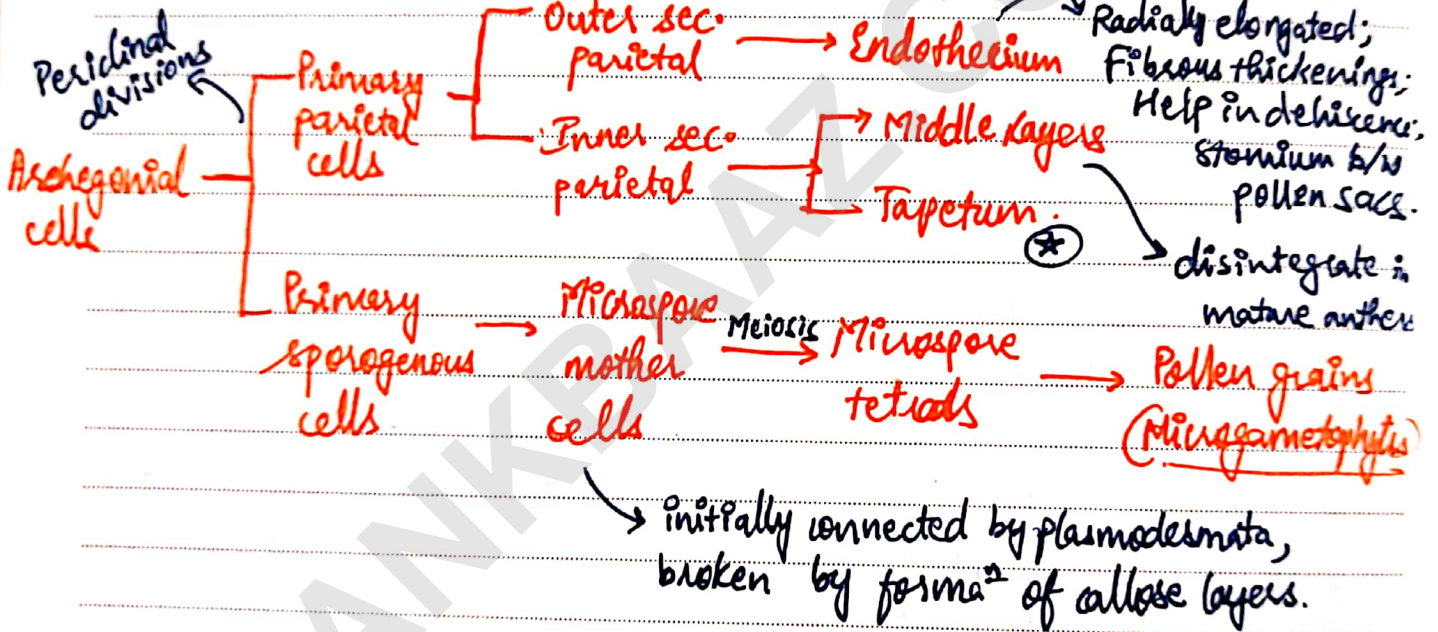 Periclinal
divisions
Archegonial
cells
Primary
parietal
cells
Outer sec.
parietal
Endothecium
Radially elongated;
Fibrous thickenings;
Help in dehiscence;
Stomium b/w
pollen sacs.
Inner sec.
parietal
Middle layers
Tapetum.
disintegrate in
mature anther
Primary
sporogenous
cells
Microspore
mother
cells
Meiosis
Microspore
tetrads
Pollen grains
(Microgametophytes)
initially connected by plasmodesmata,
broken by formaⁿ of callose layers.
ANKBAAZ.C